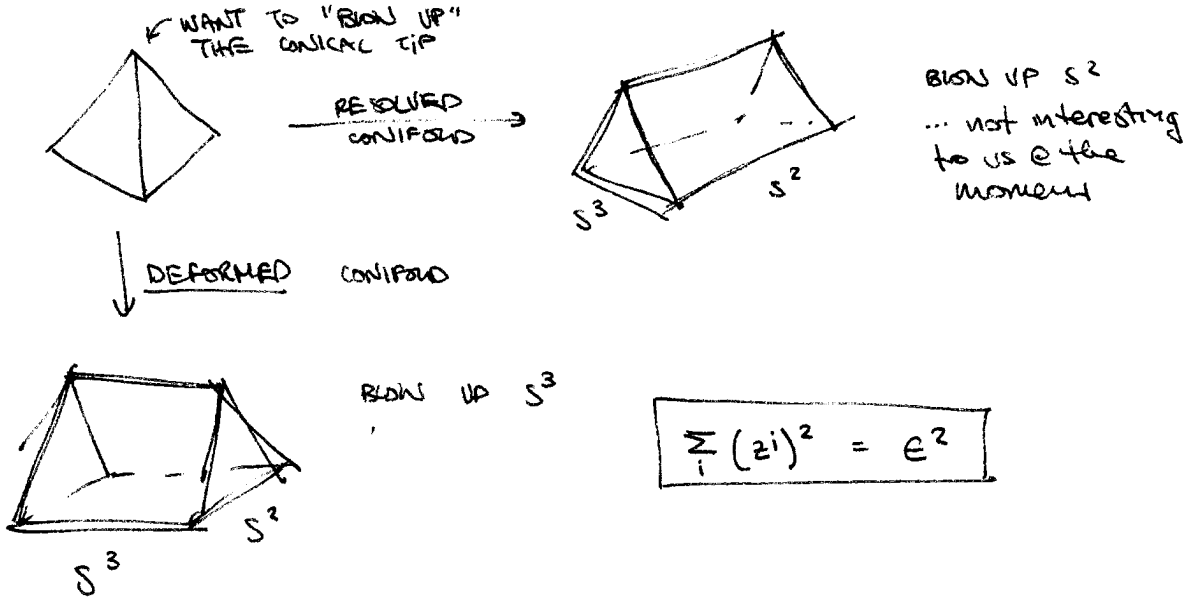 WANT TO "BLOW UP"
THE CONICAL TIP
RESOLVED
CONIFOLD
BLOW UP S²
... not interesting
to us @ the
moment
S³
S²
DEFORMED CONIFOLD
BLOW UP S³
∑_i (z^i)² = ϵ²
S²
S³